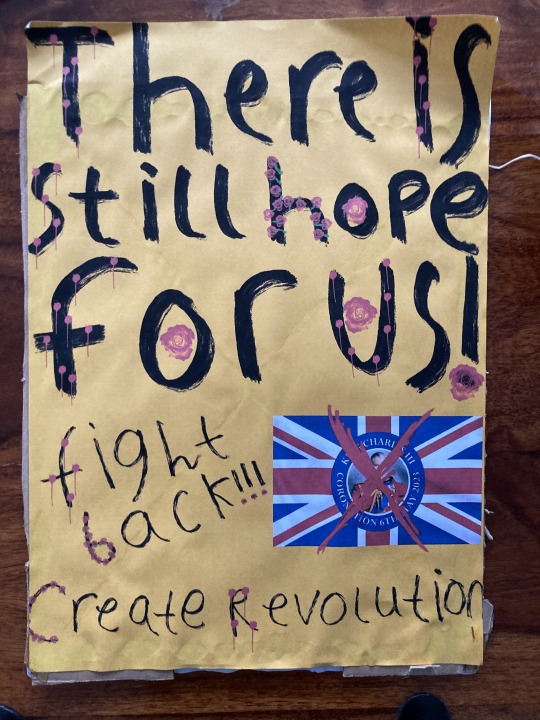 There Is
still hope
for us!
fight
back!!!
K CHARLES III
CORONATION 6TH MAY 2023
Create Revolution